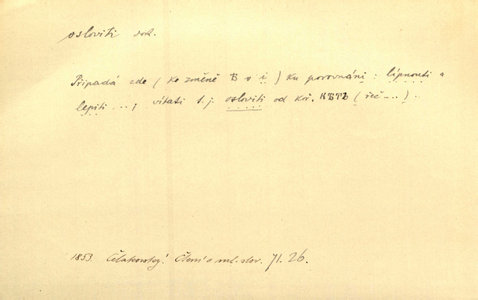 osloviti dok.
Připadá zde (ke změně B v i) ku porovnání: lípnouti a
lepiti..., vítati t.j. osloviti od koř. (řeč...).
1853. Čelakovský: Čtení o ml. slov. 26.